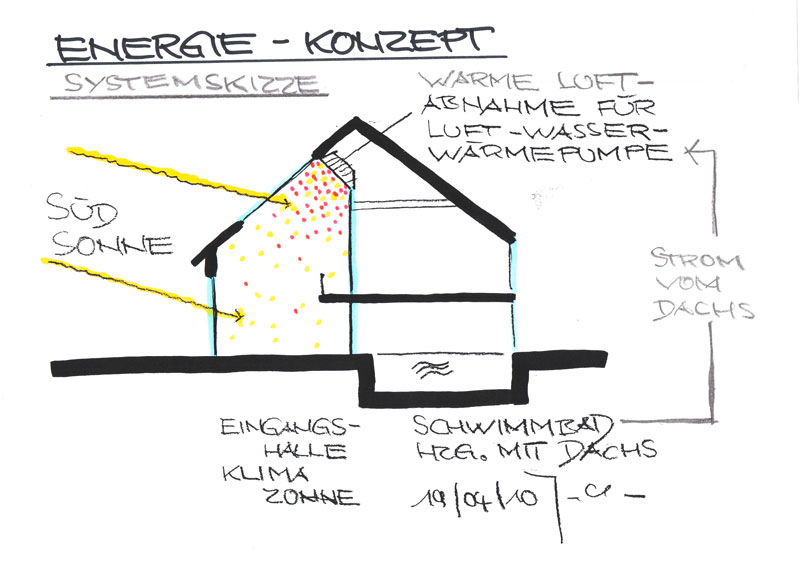 ENERGIE - KONZEPT
SYSTEMSKIZZE
WÄRME LUFT-
ABNAHME FÜR
LUFT-WASSER-
WÄRMEPUMPE
SÜD
SONNE
STROM
VOM
DACHS
EINGANGS-
HALLE
KLIMA
ZONNE
SCHWIMMBAD
HZG. MIT DACHS
19/04/10